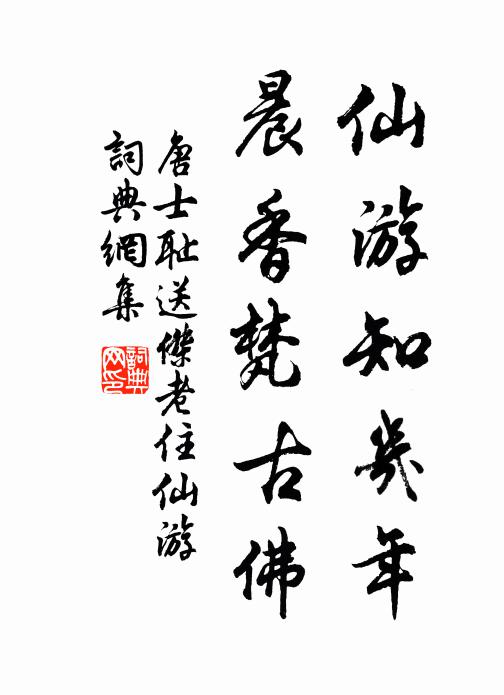 仙游知幾年
晨香梵古佛
唐士耻送傑老住仙游
詞典網集
詞典網印